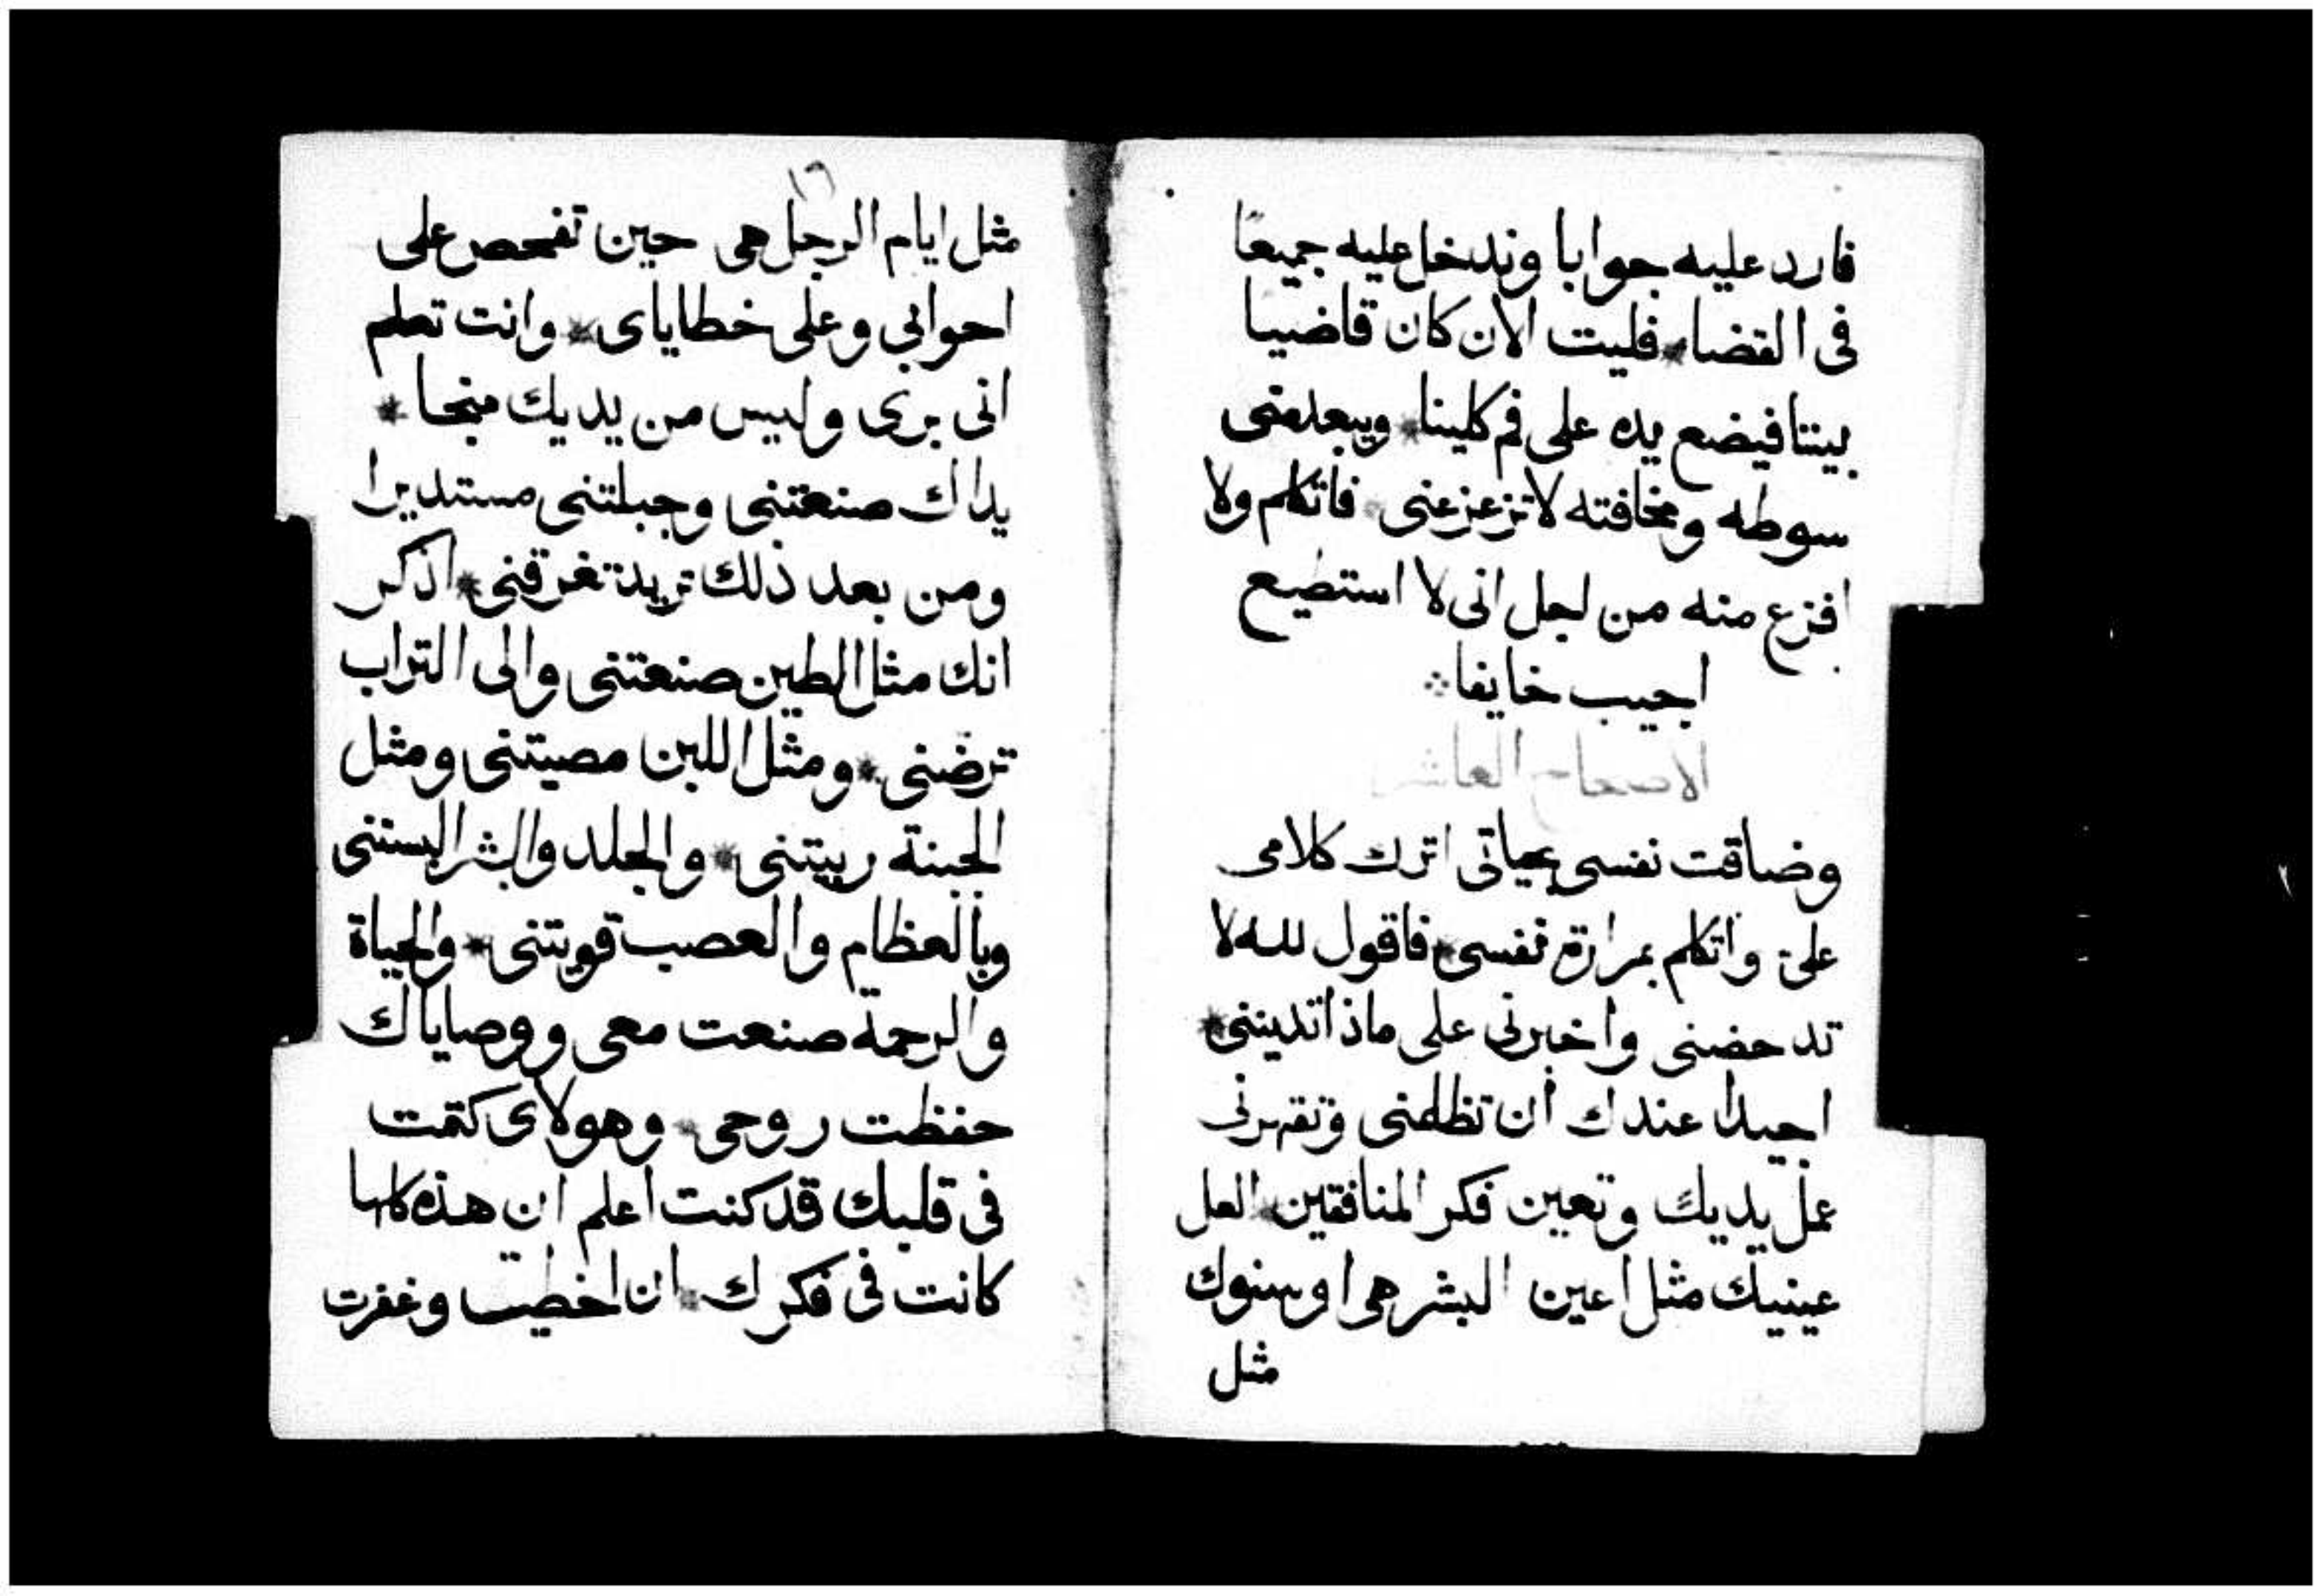 فارد عليه جوابا وندخل عليه جميعا
فى القضا * فليت الان كان قاضيا
بيننا فيضع يده على فم كلينا * ويبعد منى
سوطه ومخافته لا تزعزعنى * فاتكلم ولا
افزع منه من اجل انى لا استطيع
اجيب خايفا
الاصحاح العاشر
وضاقت نفسى بحياتى اترك كلامى
على واتكلم بمرارة نفسى * فاقول لله لا
تدحضنى واخبرنى على ماذا تدينني *
اجيدا عندك ان تظلمنى وتقهرنى
عمل يديك وتعين فكر المنافقين * العل
عينيك مثل اعين البشر هى او سنوك
مثل
١٦
مثل ايام الرجل هى حين تفحص على
احوابي وعلى خطاياى * وانت تعلم
انى برى وليس من يديك منجا *
يداك صنعتنى وجبلتنى مستديرا
ومن بعد ذلك تريد تغرقنى * اذكر
انك مثل الطين صنعتنى والى التراب
ترضنى * ومثل اللبن مصيتنى ومثل
الجبنة ربيتنى * والجلد والبشر البستنى
وبالعظام والعصب قويتنى * والحياة
والرحمة صنعت معى ووصاياك
حفظت روحى * وهولاى كتمت
فى قلبك قد كنت اعلم ان هذه كلها
كانت فى فكرك * ان اخطيت وغفرت